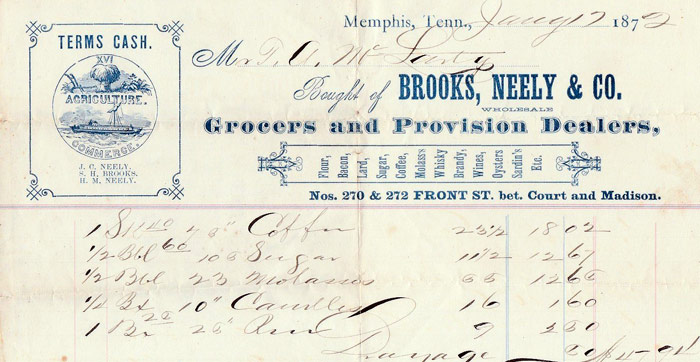 Memphis, Tenn., Jany 17 1873
TERMS CASH.
XVI
AGRICULTURE.
COMMERCE.
J. C. NEELY.
S. H. BROOKS.
H. M. NEELY.
Mr T. A. Mc
Bought of BROOKS, NEELY & CO.
WHOLESALE
Grocers and Provision Dealers,
Flour,
Bacon,
Lard,
Sugar,
Coffee,
Molass's
Whisky
Brandy,
Wines,
Oysters
Sardin's
Etc.
Nos. 270 & 272 FRONT ST. bet. Court and Madison.
1 Coffee 23 1/2 18 02
1/2 Bbl 60 108 Sugar 11 1/2 12 67
1/2 Bbl 23 Molasses 55 12 65
1/2 Bx 10" Candles 16 1 60
1 25" 9 2 50
Drayage